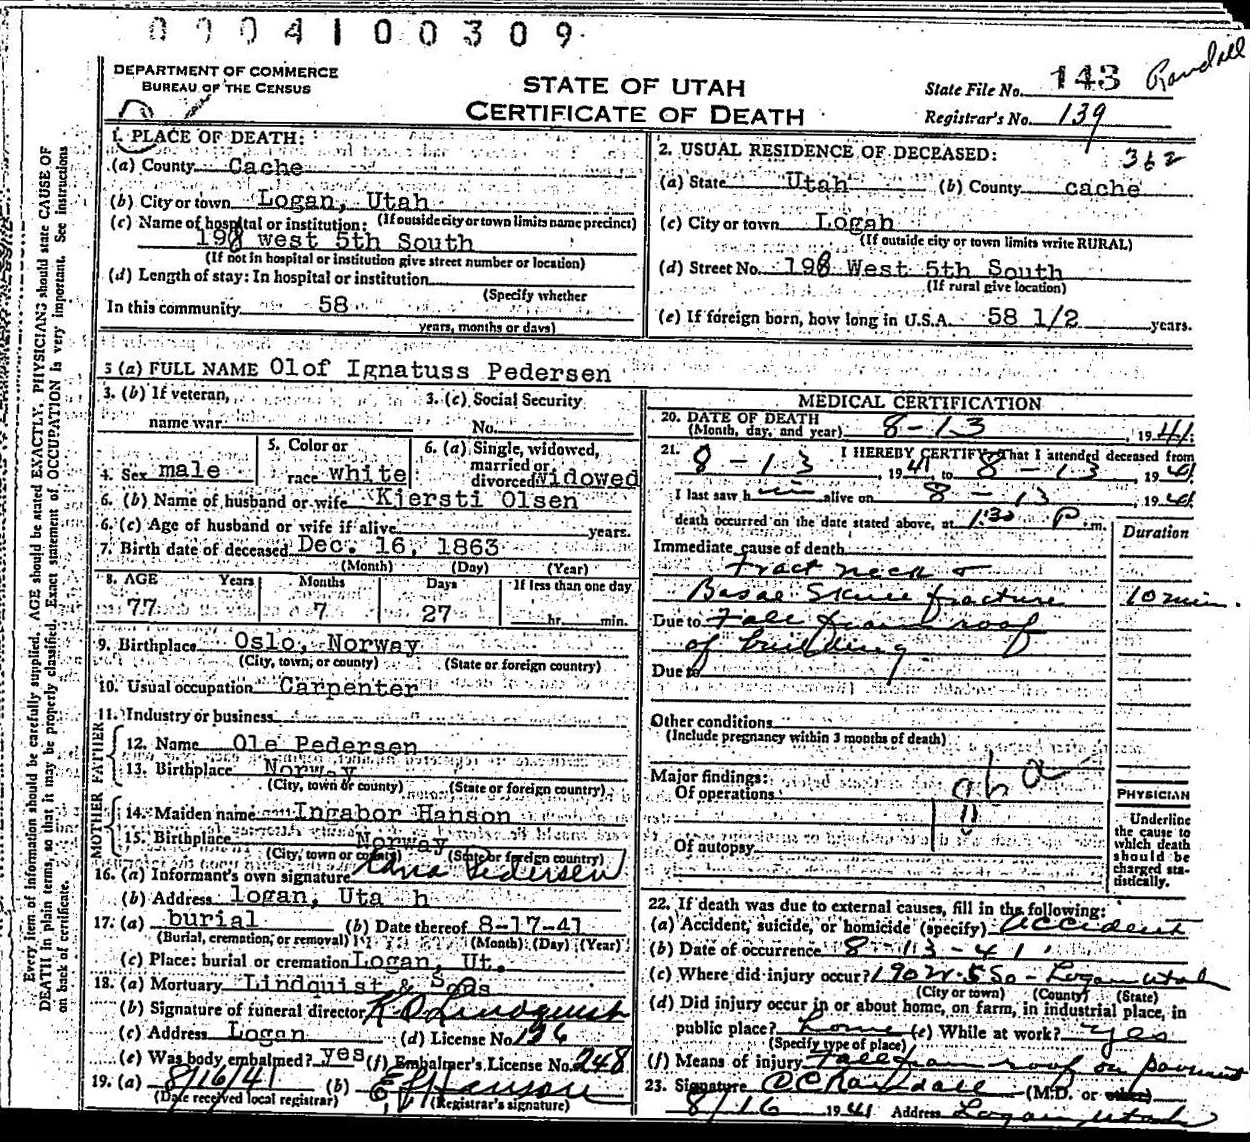 0004100309
DEPARTMENT OF COMMERCE
BUREAU OF THE CENSUS
STATE OF UTAH
CERTIFICATE OF DEATH
State File No. 143 Randall
Registrar's No. 139
1. PLACE OF DEATH:
(a) County Cache
(b) City or town Logan, Utah
(If outside city or town limits name precinct)
(c) Name of hospital or institution:
190 west 5th South
(If not in hospital or institution give street number or location)
(d) Length of stay: In hospital or institution
(Specify whether
In this community 58
years, months or days)
2. USUAL RESIDENCE OF DECEASED: 362
(a) State Utah (b) County cache
(c) City or town Logan
(If outside city or town limits write RURAL)
(d) Street No. 190 West 5th South
(If rural give location)
(e) If foreign born, how long in U.S.A. 58 1/2 years.
3 (a) FULL NAME Olof Ignatuss Pedersen
3. (b) If veteran,
name war
3. (c) Social Security
No.
4. Sex male
5. Color or
race white
6. (a) Single, widowed,
married or
divorced Widowed
6. (b) Name of husband or wife Kjersti Olsen
6. (c) Age of husband or wife if alive years.
7. Birth date of deceased Dec. 16, 1863
(Month) (Day) (Year)
8. AGE Years Months Days If less than one day
77 7 27 hr. min.
9. Birthplace Oslo, Norway
(City, town, or county) (State or foreign country)
10. Usual occupation Carpenter
11. Industry or business
FATHER
12. Name Ole Pedersen
13. Birthplace Norway
(City, town or county) (State or foreign country)
MOTHER
14. Maiden name Ingabor Hanson
15. Birthplace Norway
(City, town or county) (State or foreign country)
16. (a) Informant's own signature Pedersen
(b) Address logan, Uta h
17. (a) burial (b) Date thereof 8-17-41
(Burial, cremation, or removal) (Month) (Day) (Year)
(c) Place: burial or cremation Logan, Ut.
18. (a) Mortuary Lindquist & Sons
(b) Signature of funeral director K. O. Lindquist
(c) Address Logan (d) License No. 126
(e) Was body embalmed? yes (f) Embalmer's License No. 248
19. (a) 8/16/41 (b) Hanson
(Date received local registrar) (Registrar's signature)
MEDICAL CERTIFICATION
20. DATE OF DEATH
(Month, day, and year) 8-13, 1941.
21. I HEREBY CERTIFY, That I attended deceased from
8-13, 1941 to 8-13, 1941
I last saw him alive on 8-13, 1941
death occurred on the date stated above, at 1:30 P. m.
Duration
Immediate cause of death
Fract neck &
Basal Skull fracture 10 min.
Due to Fall from roof
of building
Due to
Other conditions
(Include pregnancy within 3 months of death)
Major findings:
Of operations
Of autopsy
PHYSICIAN
Underline
the cause to
which death
should be
charged sta-
tistically.
22. If death was due to external causes, fill in the following:
(a) Accident, suicide, or homicide (specify) accident
(b) Date of occurrence 8-13-41
(c) Where did injury occur? 190 W. 5 So - Logan Utah
(City or town) (County) (State)
(d) Did injury occur in or about home, on farm, in industrial place, in
public place? home (e) While at work? yes
(Specify type of place)
(f) Means of injury Fall from roof on pavement
23. Signature O C Randall (M.D. or other)
8/16 1941 Address Logan Utah
Every item of information should be carefully supplied. AGE should be stated EXACTLY. PHYSICIANS should state CAUSE OF
DEATH in plain terms, so that it may be properly classified. Exact statement of OCCUPATION is very important. See instructions
on back of certificate.